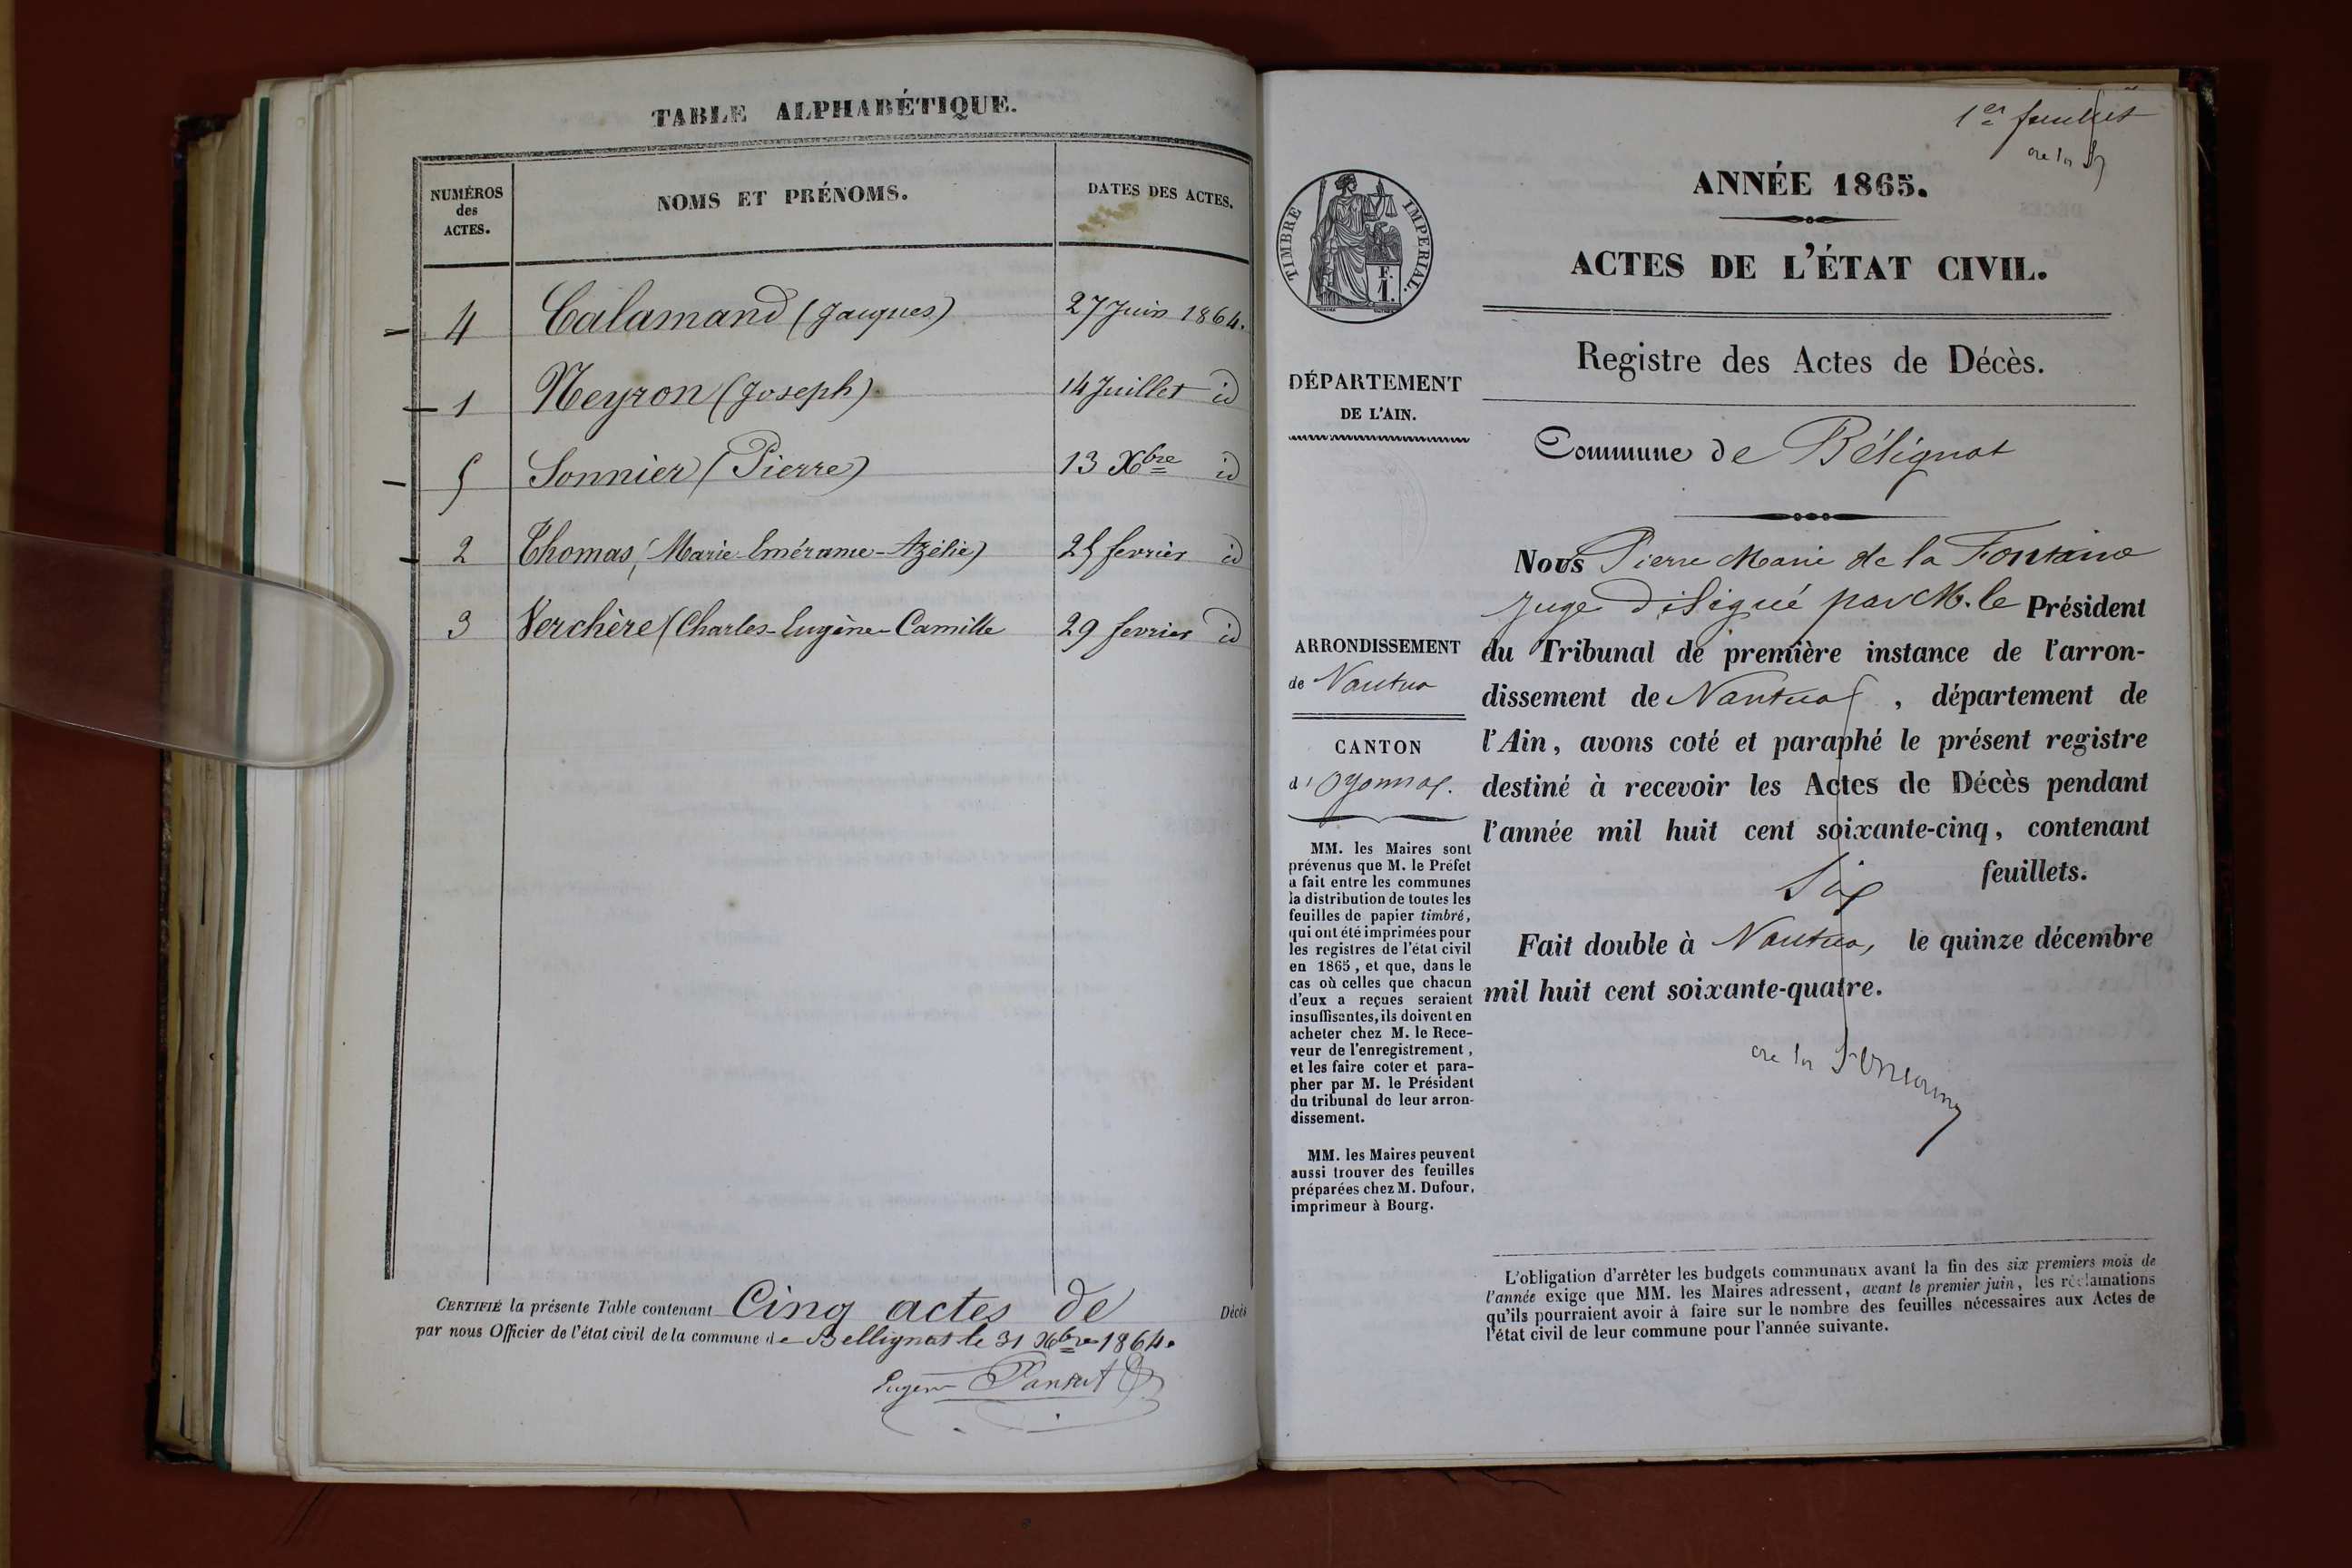 TABLE ALPHABÉTIQUE.
NUMÉROS des ACTES.
NOMS ET PRÉNOMS.
DATES DES ACTES.
4 Calamand (Jacques) 27 Juin 1864.
1 Neyron (Joseph) 14 Juillet id
5 Sonnier (Pierre) 13 Xbre id
2 Thomas, (Marie-Emérame-Azélie) 25 fevrier id
3 Verchère (Charles-Eugène-Camille 29 fevrier id
CERTIFIÉ la présente Table contenant Cinq actes de Décès
par nous Officier de l'état civil de la commune de Bellignat le 31 Xbre 1864.
Eugène
1er feuillet
de la F
TIMBRE IMPÉRIAL.
F.
1.
ANNÉE 1865.
ACTES DE L'ÉTAT CIVIL.
Registre des Actes de Décès.
Commune de Bélignat
DÉPARTEMENT
DE L'AIN.
ARRONDISSEMENT
de Nantua
CANTON
d'Oyonnax.
MM. les Maires sont
prévenus que M. le Préfet
a fait entre les communes
la distribution de toutes les
feuilles de papier timbré,
qui ont été imprimées pour
les registres de l'état civil
en 1865, et que, dans le
cas où celles que chacun
d'eux a reçues seraient
insuffisantes, ils doivent en
acheter chez M. le Rece-
veur de l'enregistrement,
et les faire coter et para-
pher par M. le Président
du tribunal de leur arron-
dissement.
MM. les Maires peuvent
aussi trouver des feuilles
préparées chez M. Dufour,
imprimeur à Bourg.
Nous Pierre Marie de la Fontaine
Juge délégué par M. le Président
du Tribunal de première instance de l'arron-
dissement de Nantua, département de
l'Ain, avons coté et paraphé le présent registre
destiné à recevoir les Actes de Décès pendant
l'année mil huit cent soixante-cinq, contenant
Six feuillets.
Fait double à Nantua, le quinze décembre
mil huit cent soixante-quatre.
de la Fontaine
L'obligation d'arrêter les budgets communaux avant la fin des six premiers mois de
l'année exige que MM. les Maires adressent, avant le premier juin, les réclamations
qu'ils pourraient avoir à faire sur le nombre des feuilles nécessaires aux Actes de
l'état civil de leur commune pour l'année suivante.